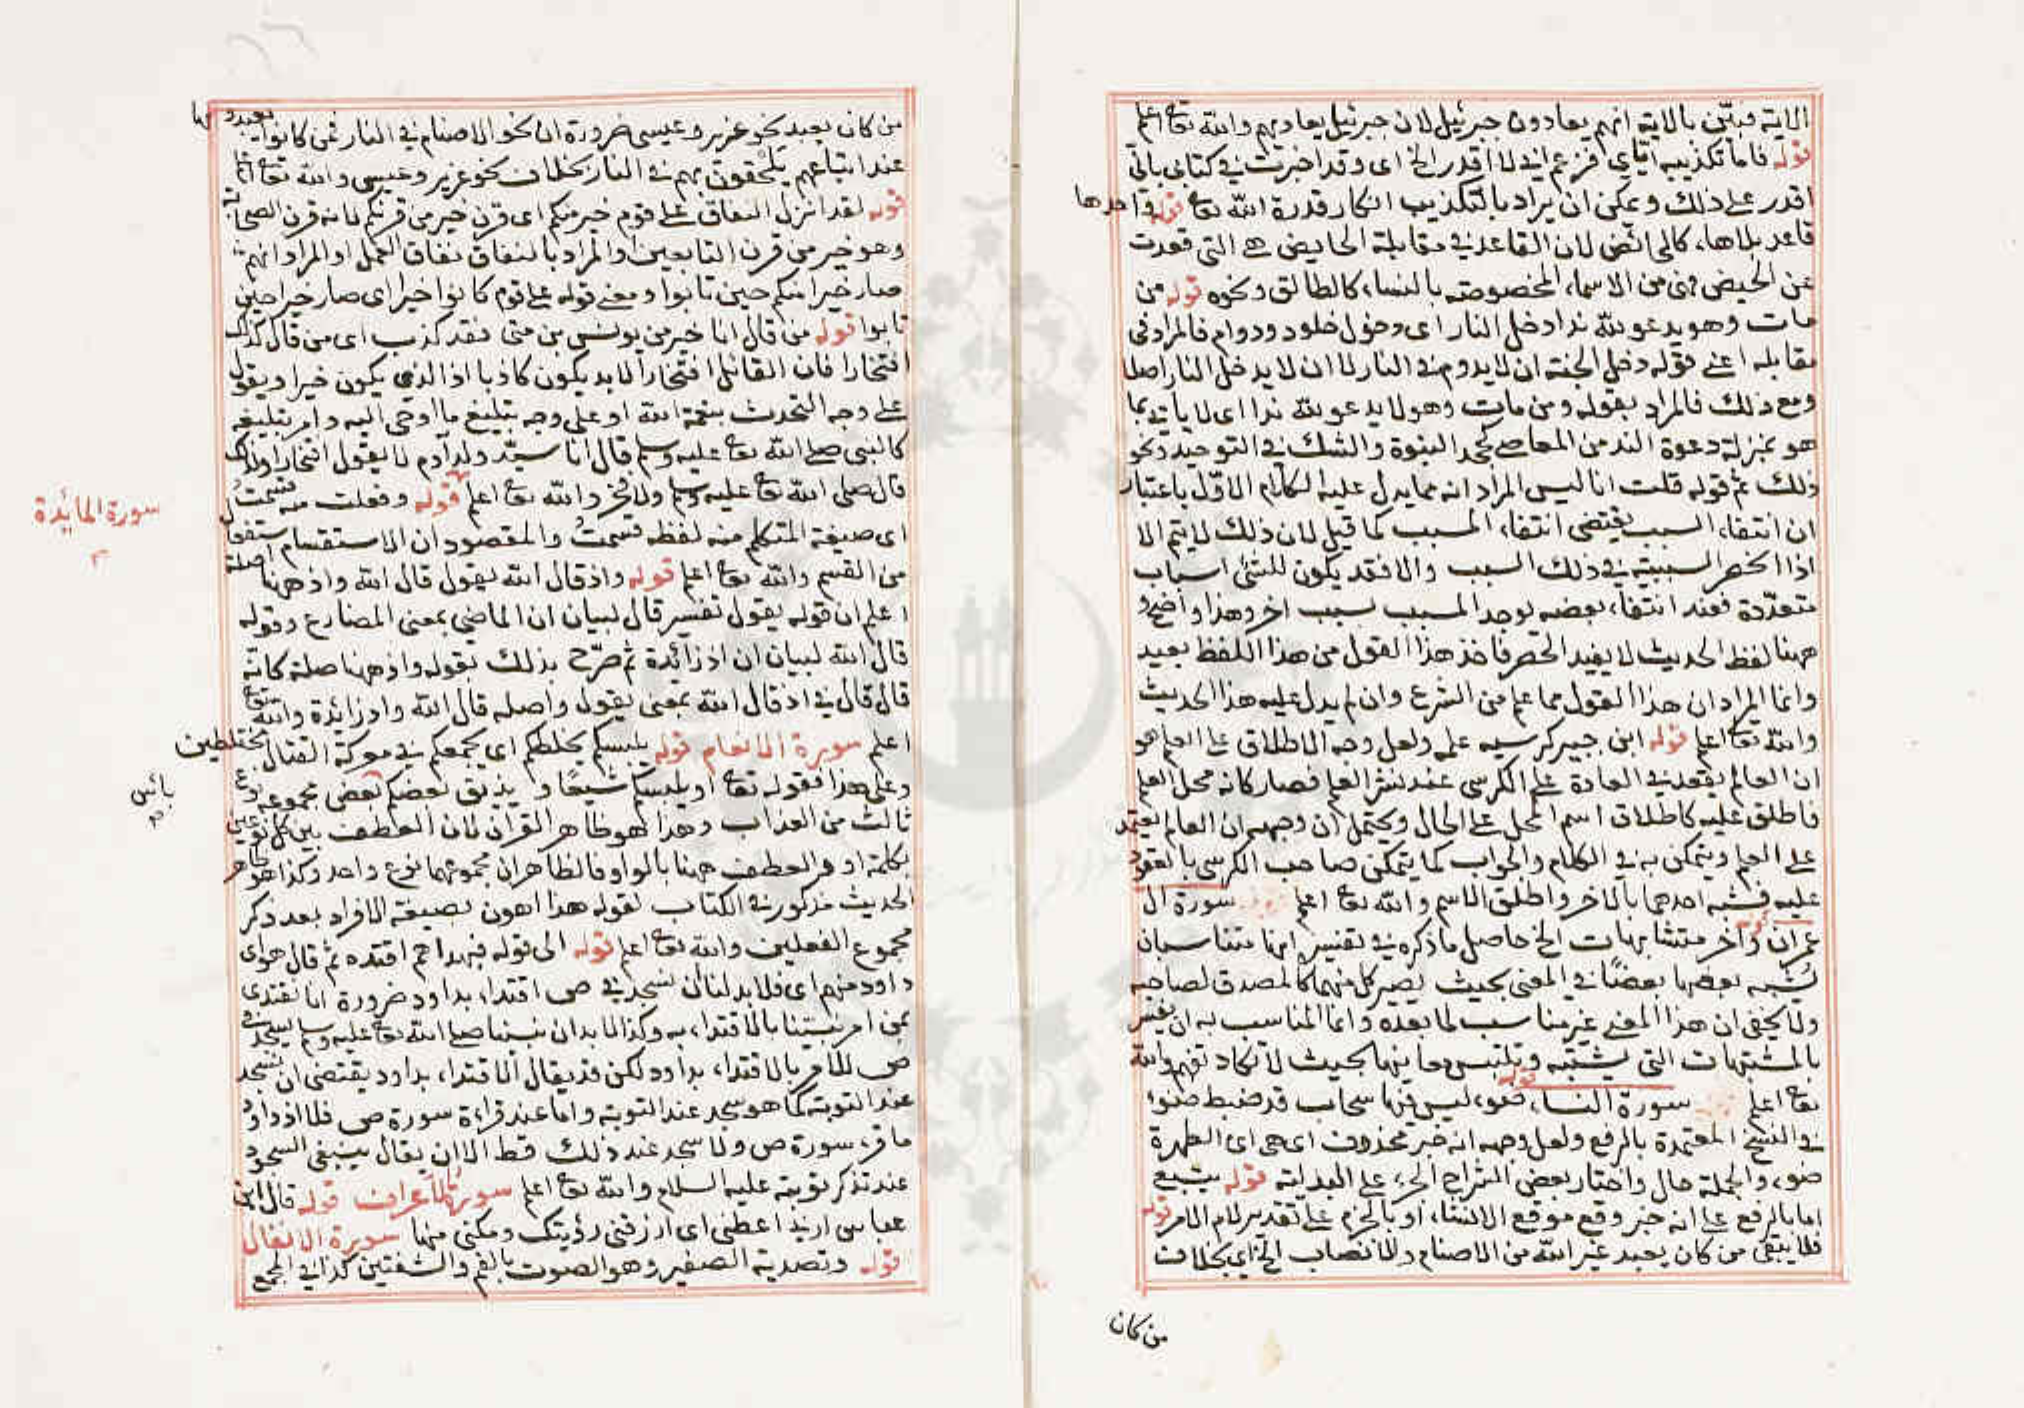 الاية فبيّن بالاية انهم يعادون جبرئيل لان جبرئيل يعاديهم والله تعا اعلم
قوله فاما تكذيبه اياي فزعم اني لا اقدر الخ اى وقد اخبرت في كتابي باني
اقدر على ذلك ويمكن ان يراد بالتكذيب انكار قدرة الله تعا قوله واحدها
قاعد بلاهاء كالحائض لان القاعد في مقابلة الحايض هي التي قعدت
عن الحيض فهى من الاسماء المخصوصة بالنساء كالطالق ونحوه قوله من
مات وهو يدعو لله ندا دخل النار اى دخول خلود ودوام فالمراد فى
مقابله اعنى قوله دخل الجنة ان لا يدوم في النار لا ان لا يدخل النار اصلا
ومع ذلك فالمراد بقوله ومن مات وهو لا يدعو لله ندا اى لا ياتى بما
هو بمنزلة دعوة الند من المعاصي كجحد النبوة والشك في التوحيد ونحو
ذلك ثم قوله قلت انا ليس المراد انه مما يدل عليه الكلام الاوّل باعتبار
ان انتفاء السبب يقتضى انتفاء المسبب كما قيل لان ذلك لا يتم الا
اذا انحصر السببية في ذلك السبب والا فقد يكون للشئ اسباب
متعدّدة فعند انتفاء بعضه يوجد المسبب بسبب اخر وهذا واضح و
ههنا لفظ الحديث لا يفيد الحصر فاخذ هذا القول من هذا اللفظ بعيد
وانما المراد ان هذا القول مما علم من الشرع وان لم يدل عليه هذا الحديث
والله تعا اعلم قوله ابن جبير كرسيه علمه ولعل وجه الاطلاق على العلم هو
ان العالم يقعد في العادة على الكرسى عند نشر العلم فصار كانه محل العلم
فاطلق عليه كاطلاق اسم المحل على الحال ويحتمل ان وجهه ان العالم يعتمد
على العلم ويتمكن به في الكلام والجواب كما يتمكن صاحب الكرسى بالقعود
عليه فشبه احدهما بالاخر واطلق الاسم والله تعا اعلم سورة ال
عمران قوله واخر متشابهات الخ حاصل ما ذكره في تفسير انها متناسبات
يشبه بعضها بعضًا في المعنى بحيث يصير كل منهما كالمصدق لصاحبه
ولا يخفى ان هذا المعنى غير مناسب لما بعده وانما المناسب به ان يفسر
بالمشتبهات التى يشتبه ويلتبس معانيها بحيث لا تكاد تفهم والله
تعا اعلم سورة النساء قوله ضوء ليس فيها سحاب قد ضبط ضوء
في النسخ المعتمدة بالرفع ولعل وجهه انه خبر محذوف اى هى اى الظهيرة
ضوء والجملة حال واختار بعض الشراح الجر على البدلية قوله يتبع
اما بالرفع على انه خبر وقع موقع الانشاء او بالجزم على تقدير لام الامر قوله
فلا يبقى من كان يعبد غير الله من الاصنام والانصاب الخ اى بخلاف
من كان
من كان يعبد نحو عزير وعيسى ضرورة ان نحو الاصنام في النار فمن كانوا يعبدونها
عند اتباعهم يلحقون بهم في النار بخلاف نحو عزير وعيسى والله تعا اعلم
قوله لقد انزل النفاق على قوم خير منكم اى قرن خير من قرنكم لانه قرن الصحابة
وهو خير من قرن التابعين والمراد بالنفاق نفاق العمل او المراد انهم
صار خيرا منكم حين تابوا ومعنى قوله على قوم كانوا خيرا اى صار خيرا حين
تابوا قوله من قال انا خير من يونس بن متى فقد كذب اى من قال كذلك
افتخارا فان القائل افتخارا لا بد يكون كاذبا اذ الذي يكون خيرا ويقول
على وجه التحدث بنعمة الله او على وجه تبليغ ما اوحى اليه وامر بتبليغه
كالنبى صلى الله تعا عليه وسلم قال انا سيّد ولد آدم لا يقول افتخارا ولذلك
قال صلى الله تعا عليه وسلم ولا فخر والله تعا اعلم قوله وفعلت منه قسمت
سورة المائدة
اى صيغة المتكلم منه لفظه قسمت والمقصود ان الاستقسام استفعال
من القسم والله تعا اعلم قوله واذ قال الله يقول قال الله واذ ههنا صلة
اعلم ان قوله يقول تفسير قال لبيان ان الماضي بمعنى المضارع وقوله
قال الله لبيان ان اذ زائدة ثم صرّح بذلك بقوله واذ ههنا صلة كانه
قال قال في اذ قال الله بمعنى يقول واصله قال الله واذ زائدة والله تعا
اعلم سورة الانعام قوله يلبسكم يخلطكم اى يجمعكم في معركة القتال مختلطين
وعلى هذا فقوله تعا او يلبسكم شيعًا ويذيق بعضكم بعض مجموعه نوع
ثالث من العذاب وهذا هو ظاهر القرآن لان العطف بين كل نوعين
بكلمة او والعطف ههنا بالواو فالظاهر ان مجموعهما نوع واحد وكذا هو ظاهر
الحديث مذكور في الكتاب لقوله هذا اهون بصيغة الافراد بعد ذكر
مجموع الفعلين والله تعا اعلم قوله الى قوله فبهداهم اقتده ثم قال هو اى
داود منهم اى فلا بد لنا ان نسجد في ص اقتداء بداود ضرورة انا نقتدى
بمن امر نبيّنا بالاقتداء به وكذا لا بد ان نبينا صلى الله تعا عليه وسلم يسجد في
ص للامر بالاقتداء بداود لكن قد يقال الاقتداء بداود يقتضى ان نسجد
عند التوبة كما هو سجد عند التوبة واما عند قراءة سورة ص فلا اذ داود
ما قرء سورة ص ولا سجد عند ذلك قط الا ان يقال ينبغى السجود
عند تذكر توبته عليه السلام والله تعا اعلم سورة الأعراف قوله قال ابن
عباس ارنى اعطنى اى ارزقنى رؤيتك ومكنى منها سورة الانفال
قوله وتصدية الصفير وهو الصوت بالفم والشفتين كذا في المجمع